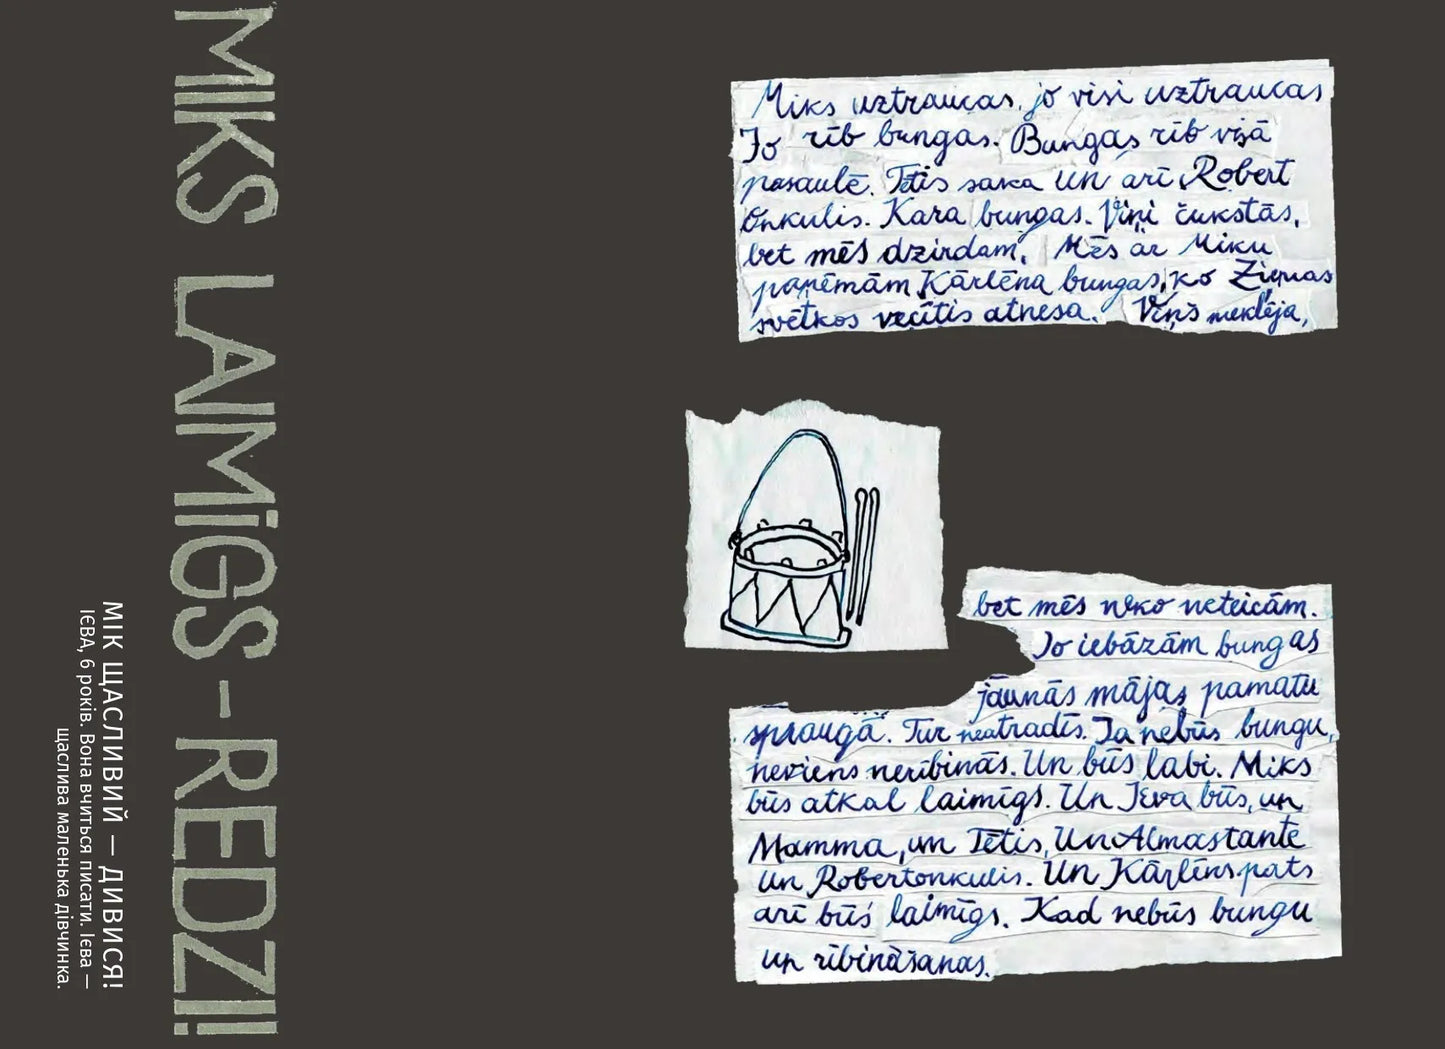 MIKS LAIMĪGS - REDZI!
МІК ЩАСЛИВИЙ — ДИВИСЯ!
ІЄВА, 6 років. Вона вчиться писати. Ієва —
щаслива маленька дівчинка.
Miks uztraucas, jo visi uztraucas
Jo rīb bungas. Bungas rīb visā
pasaulē. Tētis saka un arī Robert
onkulis. Kara bungas. Viņi čukstās,
bet mēs dzirdam. Mēs ar Miku
paņēmām Kārlēna bungas, ko Ziemas
svētkos vecītis atnesa. Viņš meklēja,
bet mēs neko neteicām.
Jo iebāzām bungas
jaunās mājas pamatu
spraugā. Tur neatradīs. Ja nebūs bungu,
neviens neribinās. Un būs labi. Miks
būs atkal laimīgs. Un Ieva būs, un
Mamma, un Tētis, Un Almastante
un Robertonkulis. Un Kārlēns pats
arī būs laimīgs. Kad nebūs bungu
un rībināšanas.